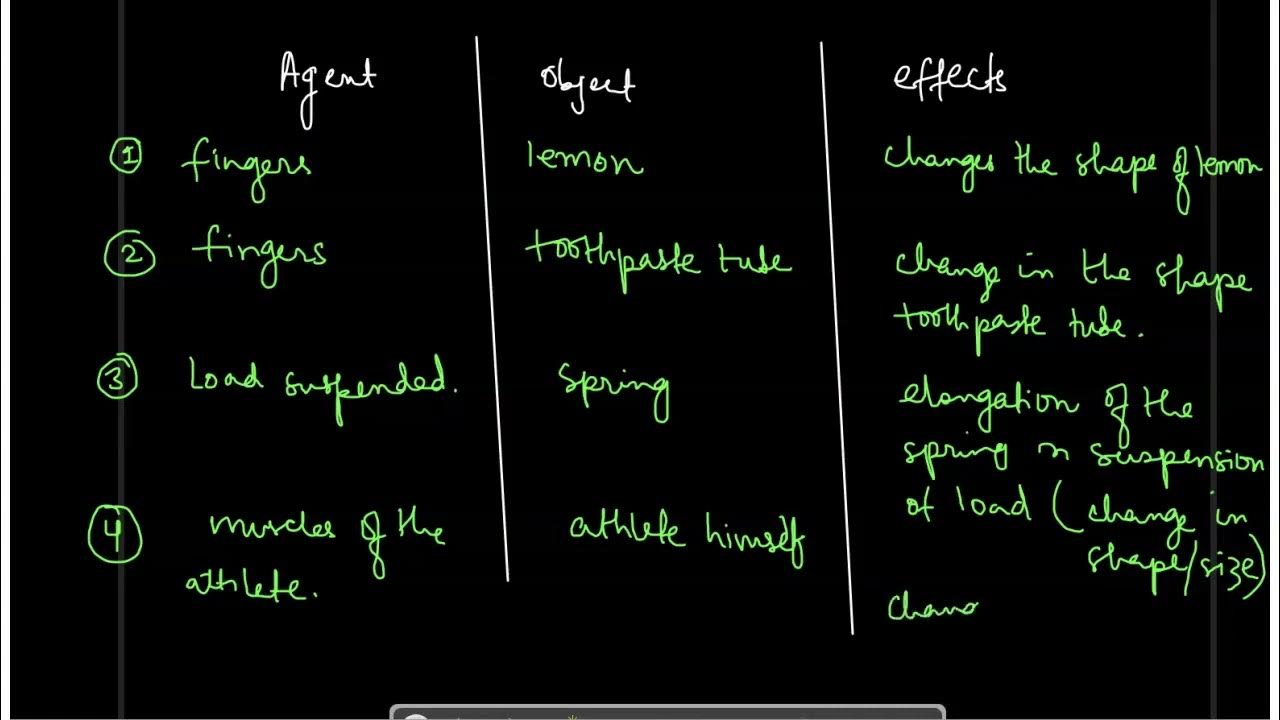 Agent object effects
1 fingers lemon changes the shape of lemon
2 fingers toothpaste tube change in the shape
toothpaste tube.
3 Load suspended. spring elongation of the
spring on suspension
of load (change in
shape/size)
4 muscles of the athlete himself
athlete.
chang